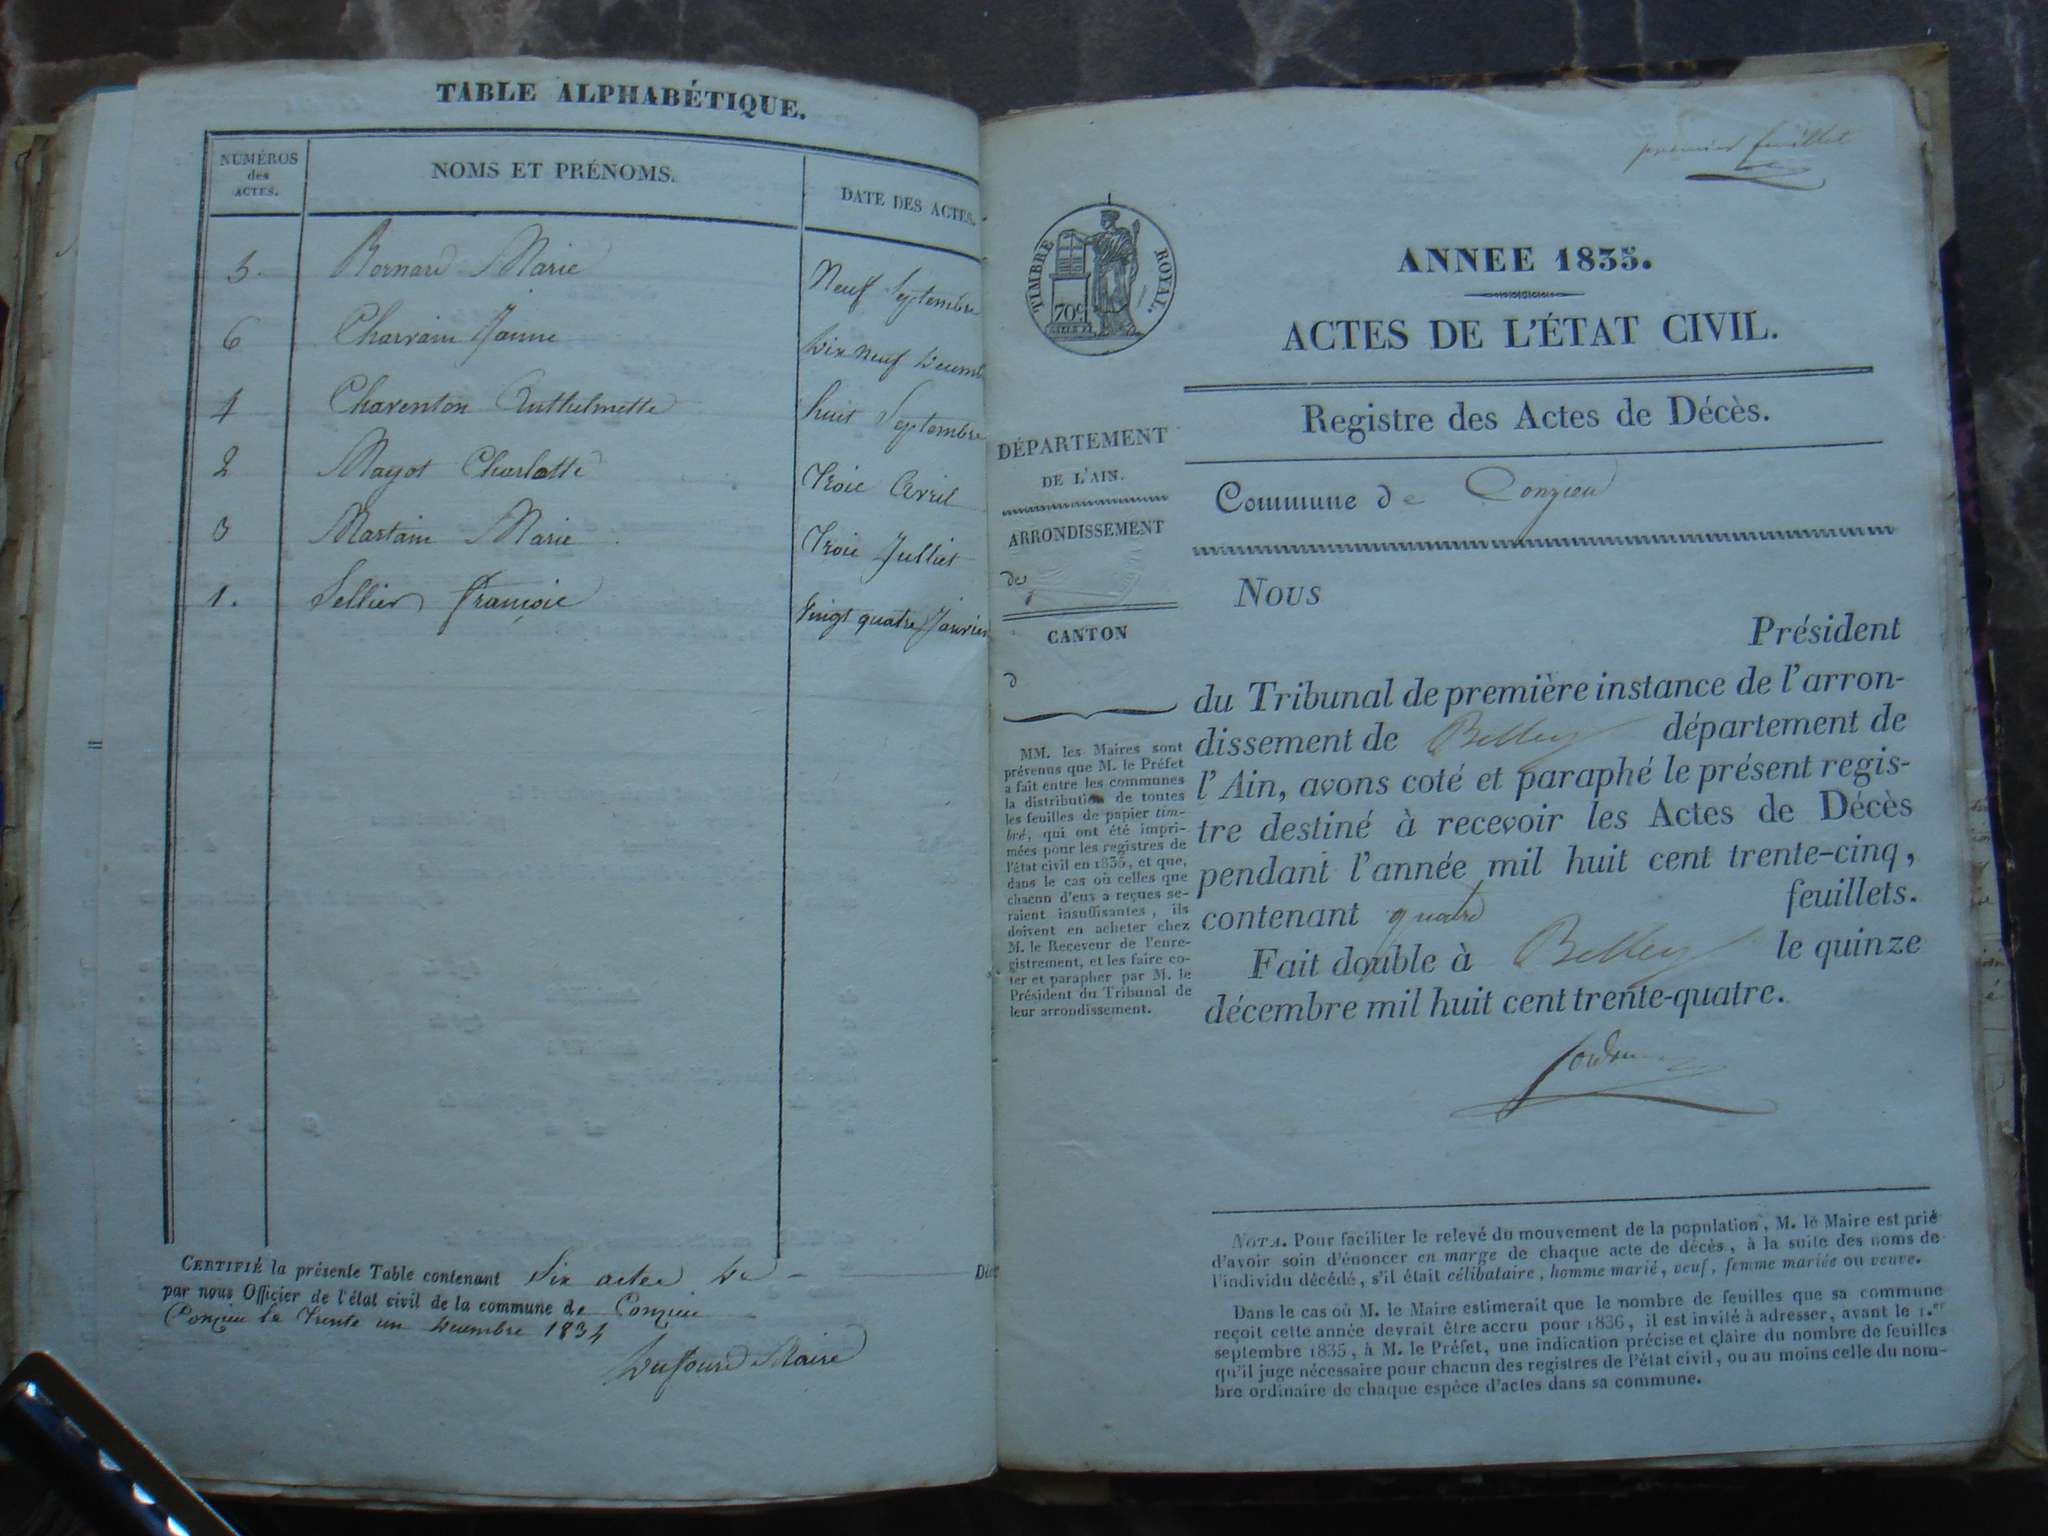 TABLE ALPHABÉTIQUE.
NUMÉROS des ACTES.
NOMS ET PRÉNOMS.
DATE DES ACTES.
5. Bornard Marie Neuf Septembre
6 Charvain Janne Dix Neuf Decemb
4 Charenton Anthelmette huit Septembre
2 Mayot Charlotte Troie Avril
3 Martain Marie Troie Julliet
1. Sellier françoie Vingt quatre Janvier
CERTIFIÉ la présente Table contenant Six actes De
par nous Officier de l'état civil de la commune de Conzieu
Conzieu Le Trente un Decembre 1834
Dufour Maire
premier feuillet
TIMBRE ROYAL.
70 c
ANNEE 1835.
ACTES DE L'ÉTAT CIVIL.
Registre des Actes de Décès.
Commune de Conzieu
DÉPARTEMENT
DE L'AIN.
ARRONDISSEMENT
de
CANTON
d
MM. les Maires sont
prévenus que M. le Préfet
a fait entre les communes
la distribution de toutes
les feuilles de papier tim-
bré, qui ont été impri-
mées pour les registres de
l'état civil en 1835, et que,
dans le cas où celles que
chacun d'eux a reçues se-
raient insuffisantes, ils
doivent en acheter chez
M. le Receveur de l'enre-
gistrement, et les faire co-
ter et parapher par M. le
Président du Tribunal de
leur arrondissement.
Nous
Président
du Tribunal de première instance de l'arron-
dissement de Belley département de
l'Ain, avons coté et paraphé le présent regis-
tre destiné à recevoir les Actes de Décès
pendant l'année mil huit cent trente-cinq,
contenant quatre feuillets.
Fait double à Belley le quinze
décembre mil huit cent trente-quatre.
NOTA. Pour faciliter le relevé du mouvement de la population, M. le Maire est prié
d'avoir soin d'énoncer en marge de chaque acte de décès, à la suite des noms de
l'individu décédé, s'il était célibataire, homme marié, veuf, femme mariée ou veuve.
Dans le cas où M. le Maire estimerait que le nombre de feuilles que sa commune
reçoit cette année devrait être accru pour 1836, il est invité à adresser, avant le 1.er
septembre 1835, à M. le Préfet, une indication précise et claire du nombre de feuilles
qu'il juge nécessaire pour chacun des registres de l'état civil, ou au moins celle du nom-
bre ordinaire de chaque espèce d'actes dans sa commune.